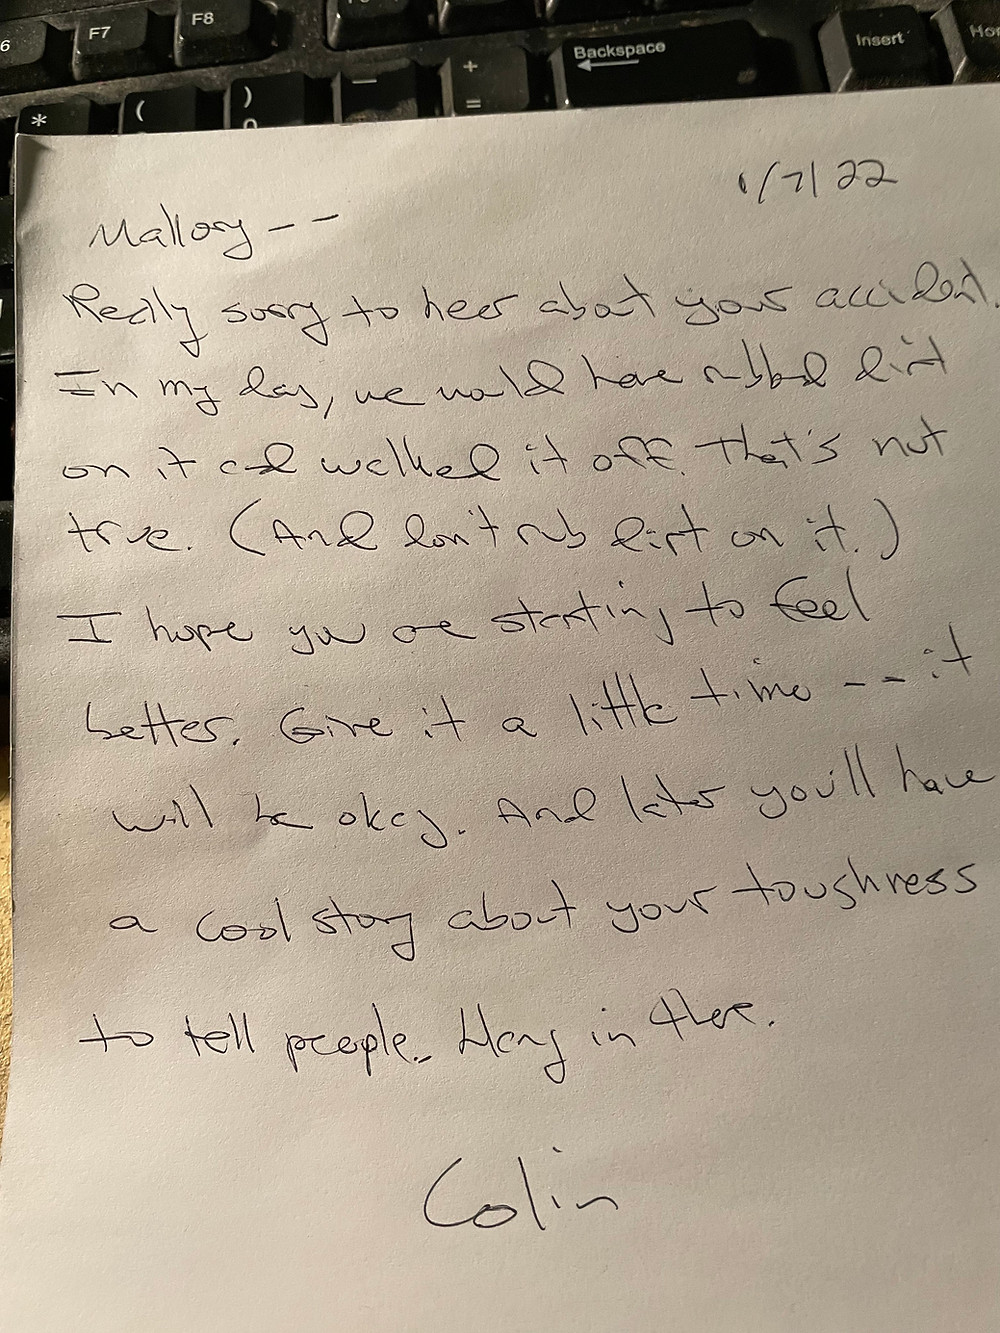 6 F7 F8
Backspace
Insert
* ( ) _ + =
1/7/22
Mallory--
Really sorry to hear about your accident.
In my day, we would have rubbed dirt
on it and walked it off. That's not
true. (And don't rub dirt on it.)
I hope you are starting to feel
better. Give it a little time -- it
will be okay. And later you'll have
a cool story about your toughness
to tell people. Hang in there.
Colin